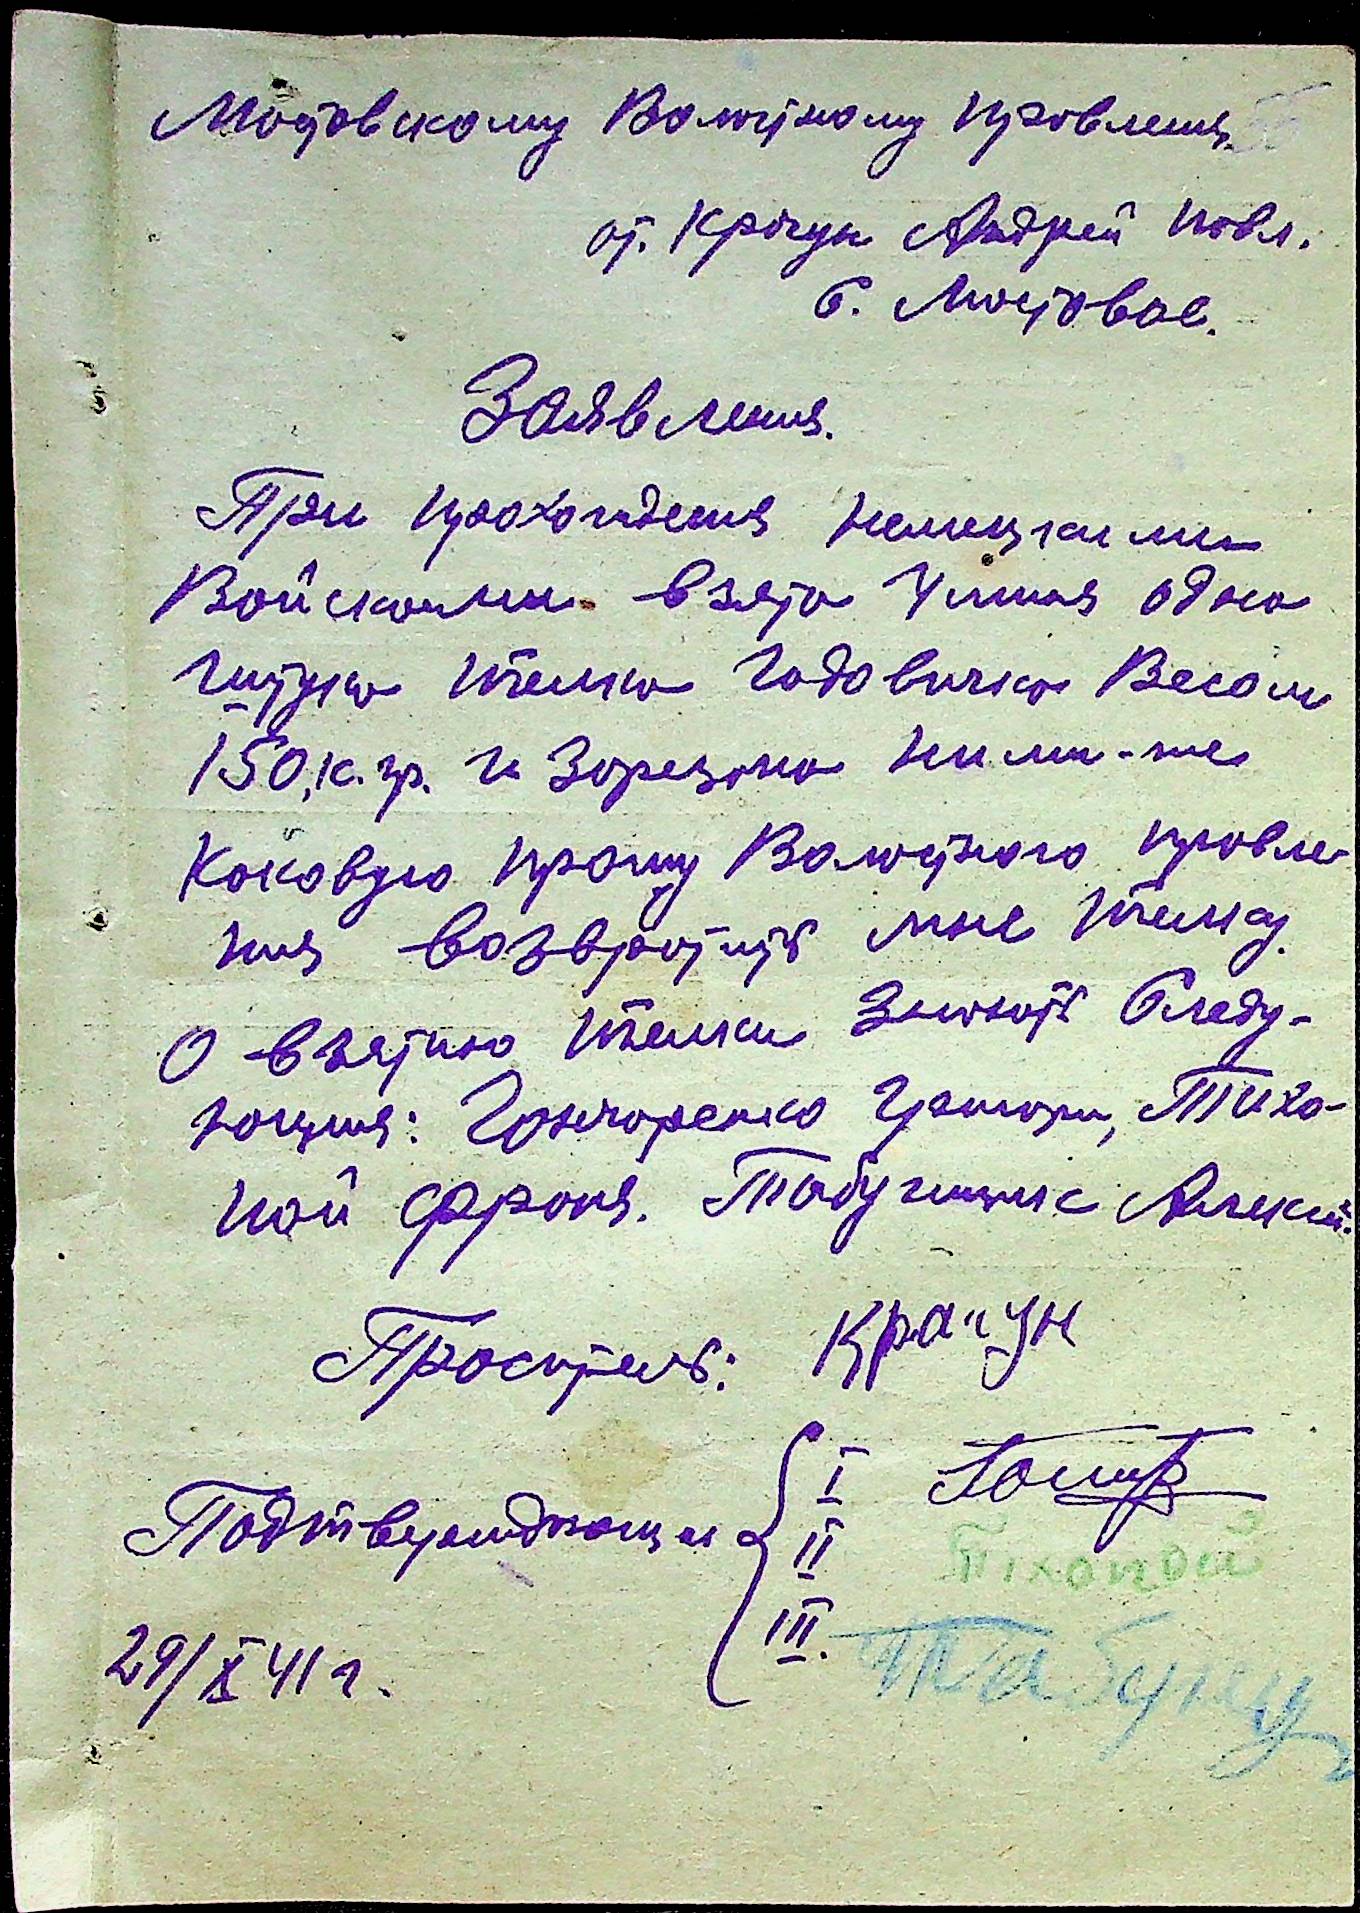 Мостовскому Волостному Провления
от. Крачун Андрей Повл.
С. Мостовое.
Заявления.
При прохождения немецкими
Войсками взята Уминя одна
штука телка годовичка Весом
150, к. гр. и Зарезана ними-же
Каковую прошу Волостного провле-
ния возвротить мне телку.
О взятию телки Знають Следу-
ющия: Гончаренко Григори, Тихо-
ной Фрона. Табунщик Алексей.
Проситель: Крачун
Подтверждающии I
II Тіхоной
III. Табунец
29/X 41 г.